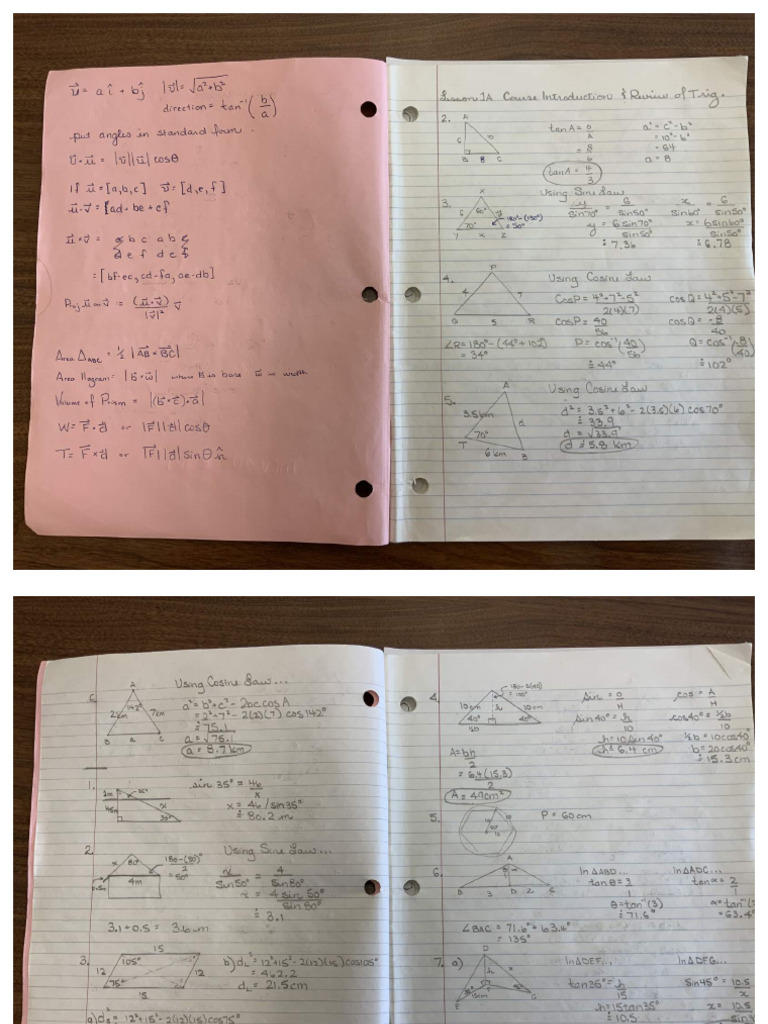 u⃗ = a î + b ĵ   |v⃗| = √a²+b²
direction = tan⁻¹ (b/a)
put angles in standard form.
v⃗ · u⃗ = |v⃗||u⃗| cosθ
If u⃗ = [a,b,c]   v⃗ = [d,e,f]
u⃗ · v⃗ = [ad + be + cf
u⃗ × v⃗ = a b c a b c
d e f d e f
= [bf-ec, cd-fa, ae-db]
Proj u⃗ on v⃗ = (u⃗·v⃗)/|v⃗|² v⃗
Area Δ ABC = ½ |AB × BC|
Area llgram = |b⃗ × w⃗| where b is base w is width
Volume of Prism = |(b⃗ × c⃗) · a⃗|
W = F⃗ · d⃗ or |F||d| cosθ
T = F⃗ × d⃗ or |F||d| sinθ n̂
Lesson 1A Course Introduction & Review of Trig.
2. A
c 10
B 8 C
tan A = O/A
= 8/6
tan A = 4/3
a² = c² - b²
= 10² - 6²
= 64
a = 8
3. X
6 60° y
70° 180°-(130°) = 50°
Y x Z
Using Sine Law
y/sin70° = 6/sin50°
y = 6sin70°/sin50°
≐ 7.36
x/sin60° = 6/sin50°
x = 6sin60°/sin50°
≐ 6.78
4. P
4 7
Q 5 R
Using Cosine Law
CosP = 4²+7²-5²/2(4)(7)
cosP = 40/56
P = cos⁻¹(40/56)
≐ 44°
cosQ = 4²+5²-7²/2(4)(5)
cosQ = -8/40
Q = cos⁻¹(-8/40)
≐ 102°
∠R = 180° - (44° + 102°)
= 34°
5. A
3.5km d
70°
T 6 km B
Using Cosine Law
d² = 3.5² + 6² - 2(3.5)(6) cos70°
≐ 33.9
d = √33.9
d ≐ 5.8 km
c. A
2cm 142° 7cm
B a C
Using Cosine Law...
a² = b² + c² - 2bc cosA
= 2² + 7² - 2(2)(7) cos142°
≐ 75.1
a = √75.1
a = 8.7km
1. 2m 35°
x
35°
sin 35° = 46/x
x = 46/sin35°
≐ 80.2 m
2. x 80° 180-(80)°/2 = 50°
4m
0.5m
Using Sine Law...
x/Sin50° = 4/Sin80°
x = 4 sin 50°/sin80°
≐ 3.1
3.1 + 0.5 = 3.6 m
3. 15
12 105° 12
75°
15
b) dL² = 12²+15²-2(12)(15)cos105°
= 462.2
dL = 21.5cm
a) ds² = 12²+15²-2(12)(15)cos75°
4. 180-2(40) = 100°
10cm h 10cm
40° 40°
½b
sin = O/H
sin40° = h/10
h = 10 sin40°
h ≐ 6.4 cm
cos = A/H
cos40° = ½b/10
½b = 10cos40°
b = 20cos40°
≐ 15.3cm
A = bh/2
= 6.4(15.3)/2
A = 49cm²
5. 10 10
60°
10
P = 60cm
6. A
B 3 D 2 C
In ΔABD...
tanθ = 3/1
θ = tan⁻¹(3)
≐ 71.6°
In ΔADC...
tanα = 2/1
α = tan⁻¹
= 63.4°
∠BAC = 71.6° + 63.4°
= 135°
7. a) D
h x
E 15cm F G
In ΔDEF...
tan35° = h/15
h = 15tan35°
≐ 10.5
In ΔDFG...
Sin45° = 10.5/x
x = 10.5